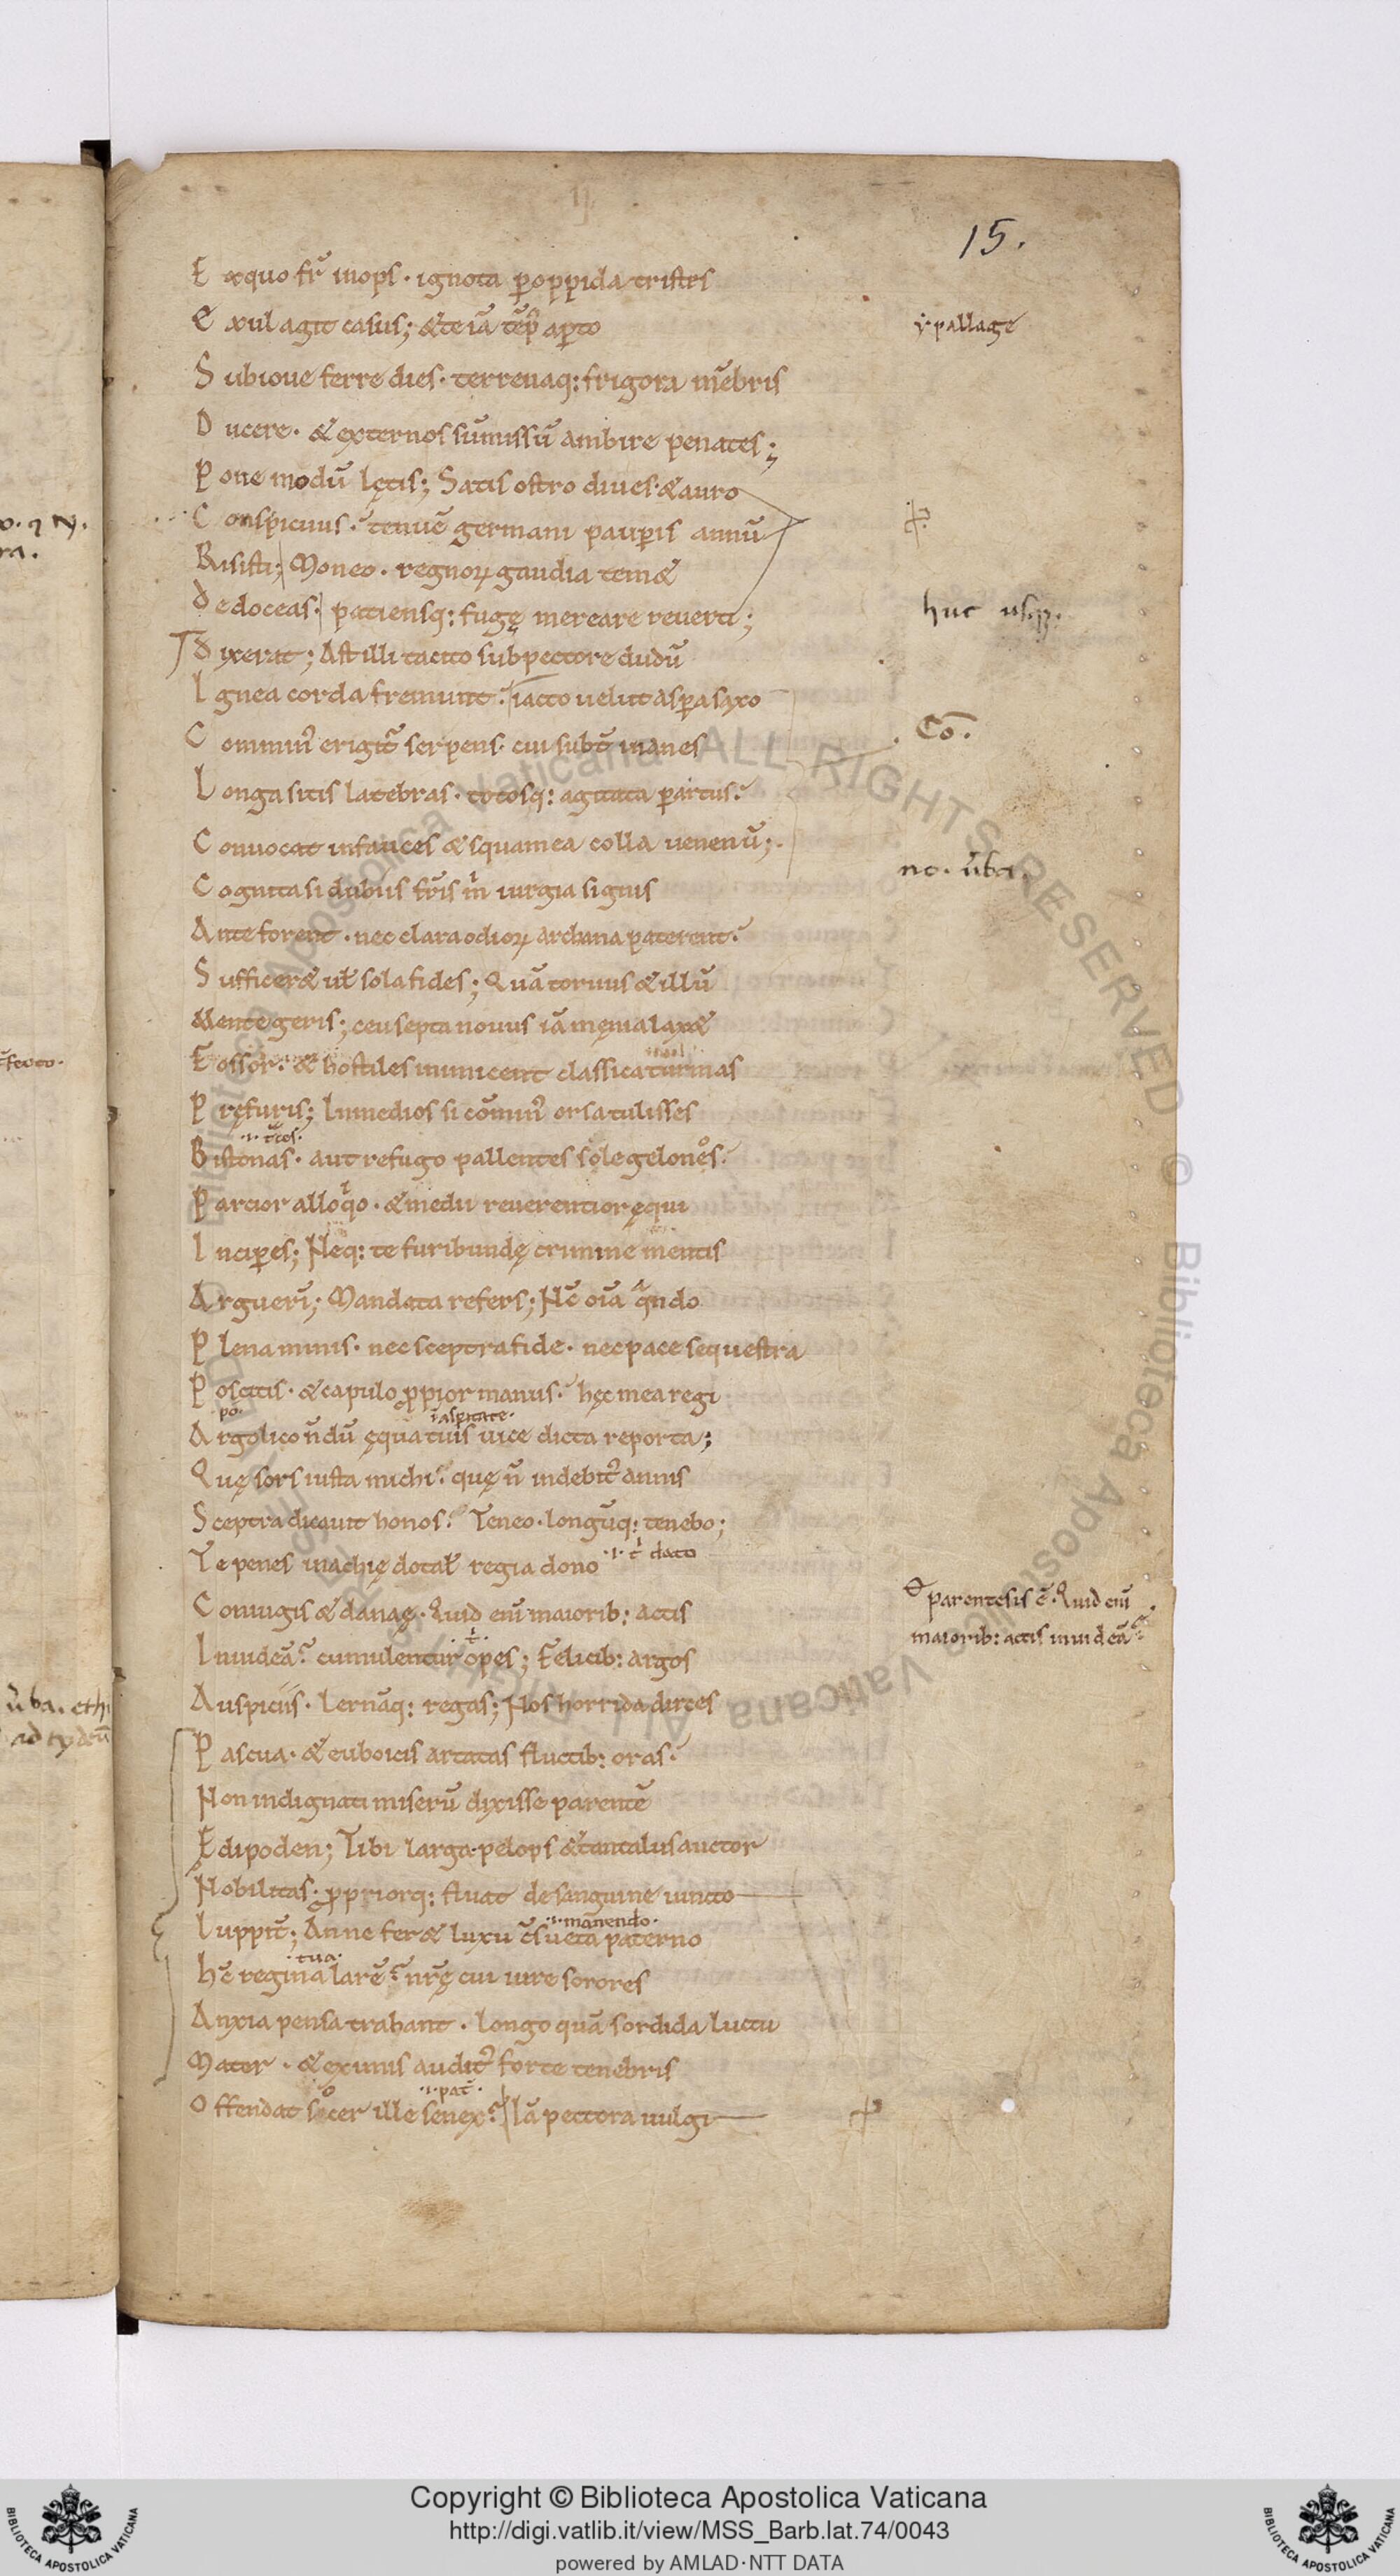 15.
E ex quo fr̃ inops · ignota ꝑ oppida tristes
E xul agit casus; & te iã tẽꝑ aꝑto
ypallage
S ub ioue ferre dies · terrenaq: frigora mẽbris
D ucere · & externos sũmissũ ambire penates;
P one modũ lętis; Satis ostro diues · & auro
C onspicuus · tenuẽ germani pauꝑis annũ
Risisti; Moneo · regnoꝝ gaudia tem&
D edoceas · patiensq: fugę mereare reuerti;
huc usqꝫ.
D ixerat; Ast illi tacito sub pectore dudũ
I gnea corda fremunt · iacto uelut asꝑa saxo
Cõ.
C omminꝰ erigit᷑ serpens · cui subt̃ inanes
L onga sitis latebras · totosq: agitata ꝑ artus ·
C onuocat in fauces & squamea colla uenenũ;
no. ũba.
C ognita si dubiis fr̃is m̃ iurgia signis
A nte forent · nec clara odioꝝ archana paterent ·
S uffic&re uł sola fides; Quã toruus & illũ
Mente geris; ceu septa nouus iã męnia lax&
F ossor · & hostiles inimicent classica turmas
P ręfuris; In medios si cõminꝰ orsa tulisses
·i· t̃ces.
Bistonas · aut refugo pallentes sole gelonos ·
P arcior alloqͥo · & medii reuerentior ęqui
I nciꝑes; Neq: te furibundę crimine mentis
Arguerĩ; Mandata refers; Nc̃ oĩa qͣndo
P lena minis · nec sceptra fide · nec pace sequestra
P oscitis · & capulo ꝓpior manus · hęc mea regi
ĩ asperitate.
Argolico ñdũ ęqua tuis uice dicta reporta;
Quę sors iusta michi · quę ñ indebitꝰ annis
Sceptra dicauit honos · Teneo · longũq: tenebo;
Te penes inachię dotał regia dono ·i· t̃ dato
C oniugis & danaę · Quid eiñ maiorib: actis
parentesis ẽ · Quid eiñ
maiorib: actis inuideã
I nuideã · cumulentur opes; Felicib: argos
Auspiciis · lernãq: regas; Nos horrida dirces
P ascua · & euboicis artatas fluctib: oras ·
Non indignati miserũ dixisse parentẽ
Edipoden; Tibi larga · pelops & tantalus auctor
Nobilitas · ꝓpriorq: fluat de sanguine iuncto
·i· manendo ·
Iuppit̃; Anne fer& luxu c̃sueta paterno
· tua ·
hc̃ regina larẽ · nr̃ę cui iure sorores
Anxia pensa trahant · longo quã sordida luctu
Mater · & ex imis auditꝰ forte tenebris
·i· pat̃ ·
O ffendat sacer ille senex · Iã pectora uulgi
Copyright © Biblioteca Apostolica Vaticana
http://digi.vatlib.it/view/MSS_Barb.lat.74/0043
powered by AMLAD·NTT DATA